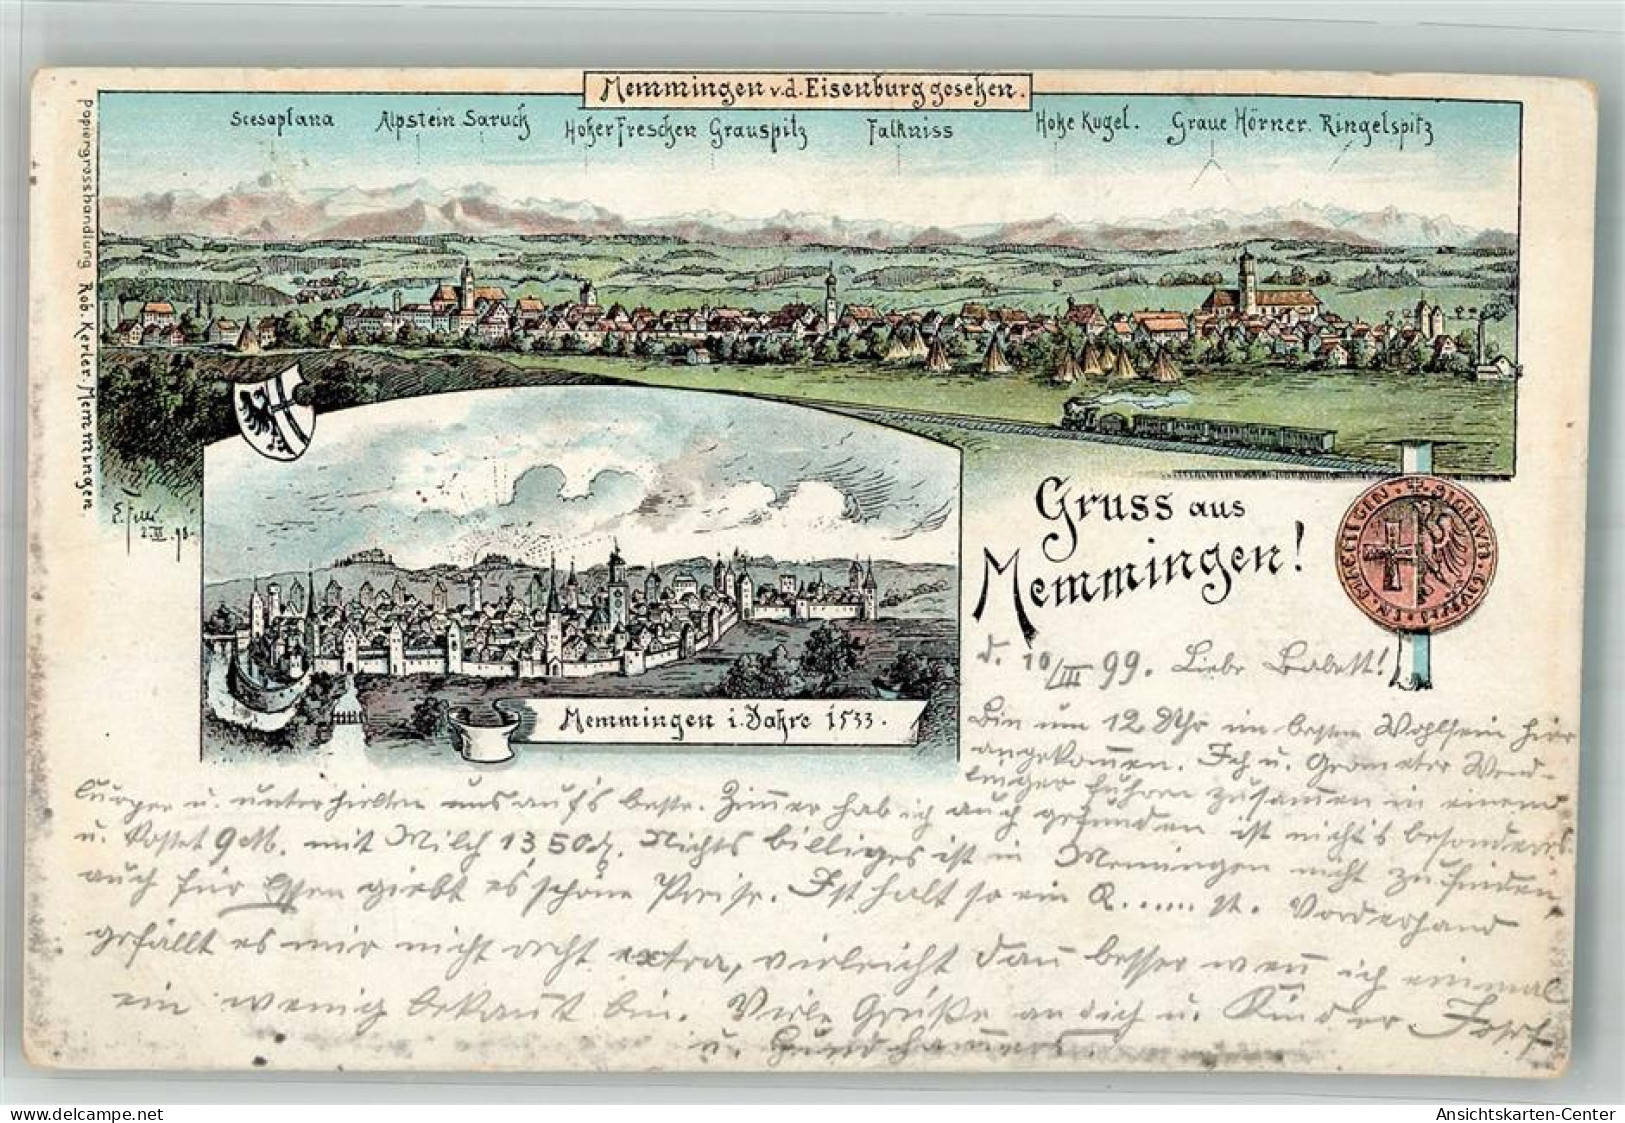 Memmingen v. d. Eisenburg gesehen.
Scesaplana Alpstein Saruck Hoher Freschen Grauspitz Falkniss Hohe Kugel. Graue Hörner. Ringelspitz
Papiergrosshandlung Rob. Kerler. Memmingen
E. Felle
2. III. 98.
Gruss aus
Memmingen!
Memmingen i. Jahre 1533.
d. 10/III 99. Liebe Babett!
Bin um 12 Uhr im besten Wohlsein hier
angekommen. Ich u. Geometer Wend-
linger fuhren zusammen in einem
u. unterhielten uns auf's beste. Zimmer hab ich auch gefunden ist nicht's besonders
u. kostet 9 M. mit Milch 13 50 d. Nichts billiges ist in Memmingen nicht zu finden
auch für Essen giebt es schöne Preise. Ist halt so ein R.....st. Vorderhand
gefällt es mir nicht recht extra, vielleicht dann besser wenn ich einmal
ein wenig bekannt bin. Viele Grüße an dich u. Kinder Josef
u.
delcampe.net
Ansichtskarten-Center